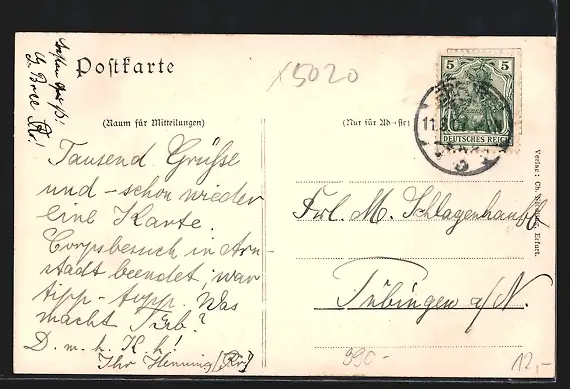 Postkarte
x5020
5 5
DEUTSCHES REICH
(Raum für Mitteilungen)
(Nur für Adresse)
Tausend Grüsse
und - schon wieder
eine Karte.
Corpsbesuch in Arn-
stadt beendet; war
tipp-topp. Was
macht Tüb?
D. m. h. H. h!
Ihr Henning
Frl. M. Schlagenhauff
Tübingen a/N.
Verlag: Ch. Erfurt.
990-
12,-